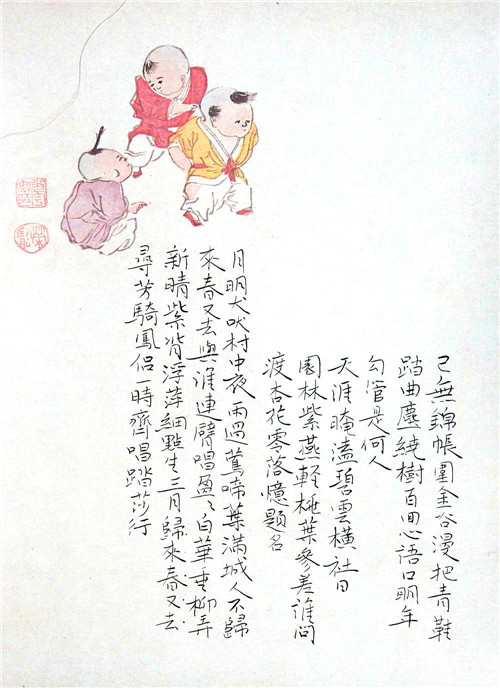 已無錦帳圍金谷漫把青鞋
踏曲塵繞樹百回心語口明年
勾管是何人
天涯晻溘碧雲橫社日
園林紫燕輕桃葉參差誰問
渡杏花零落憶題名
月明犬吠村中夜雨過鶯啼葉滿城人不歸
來春又去與誰連臂唱盈〻白華垂柳弄
新晴紫背浮萍細點生三月歸來春又去
尋芳騎鳳侶一時齊唱踏莎行